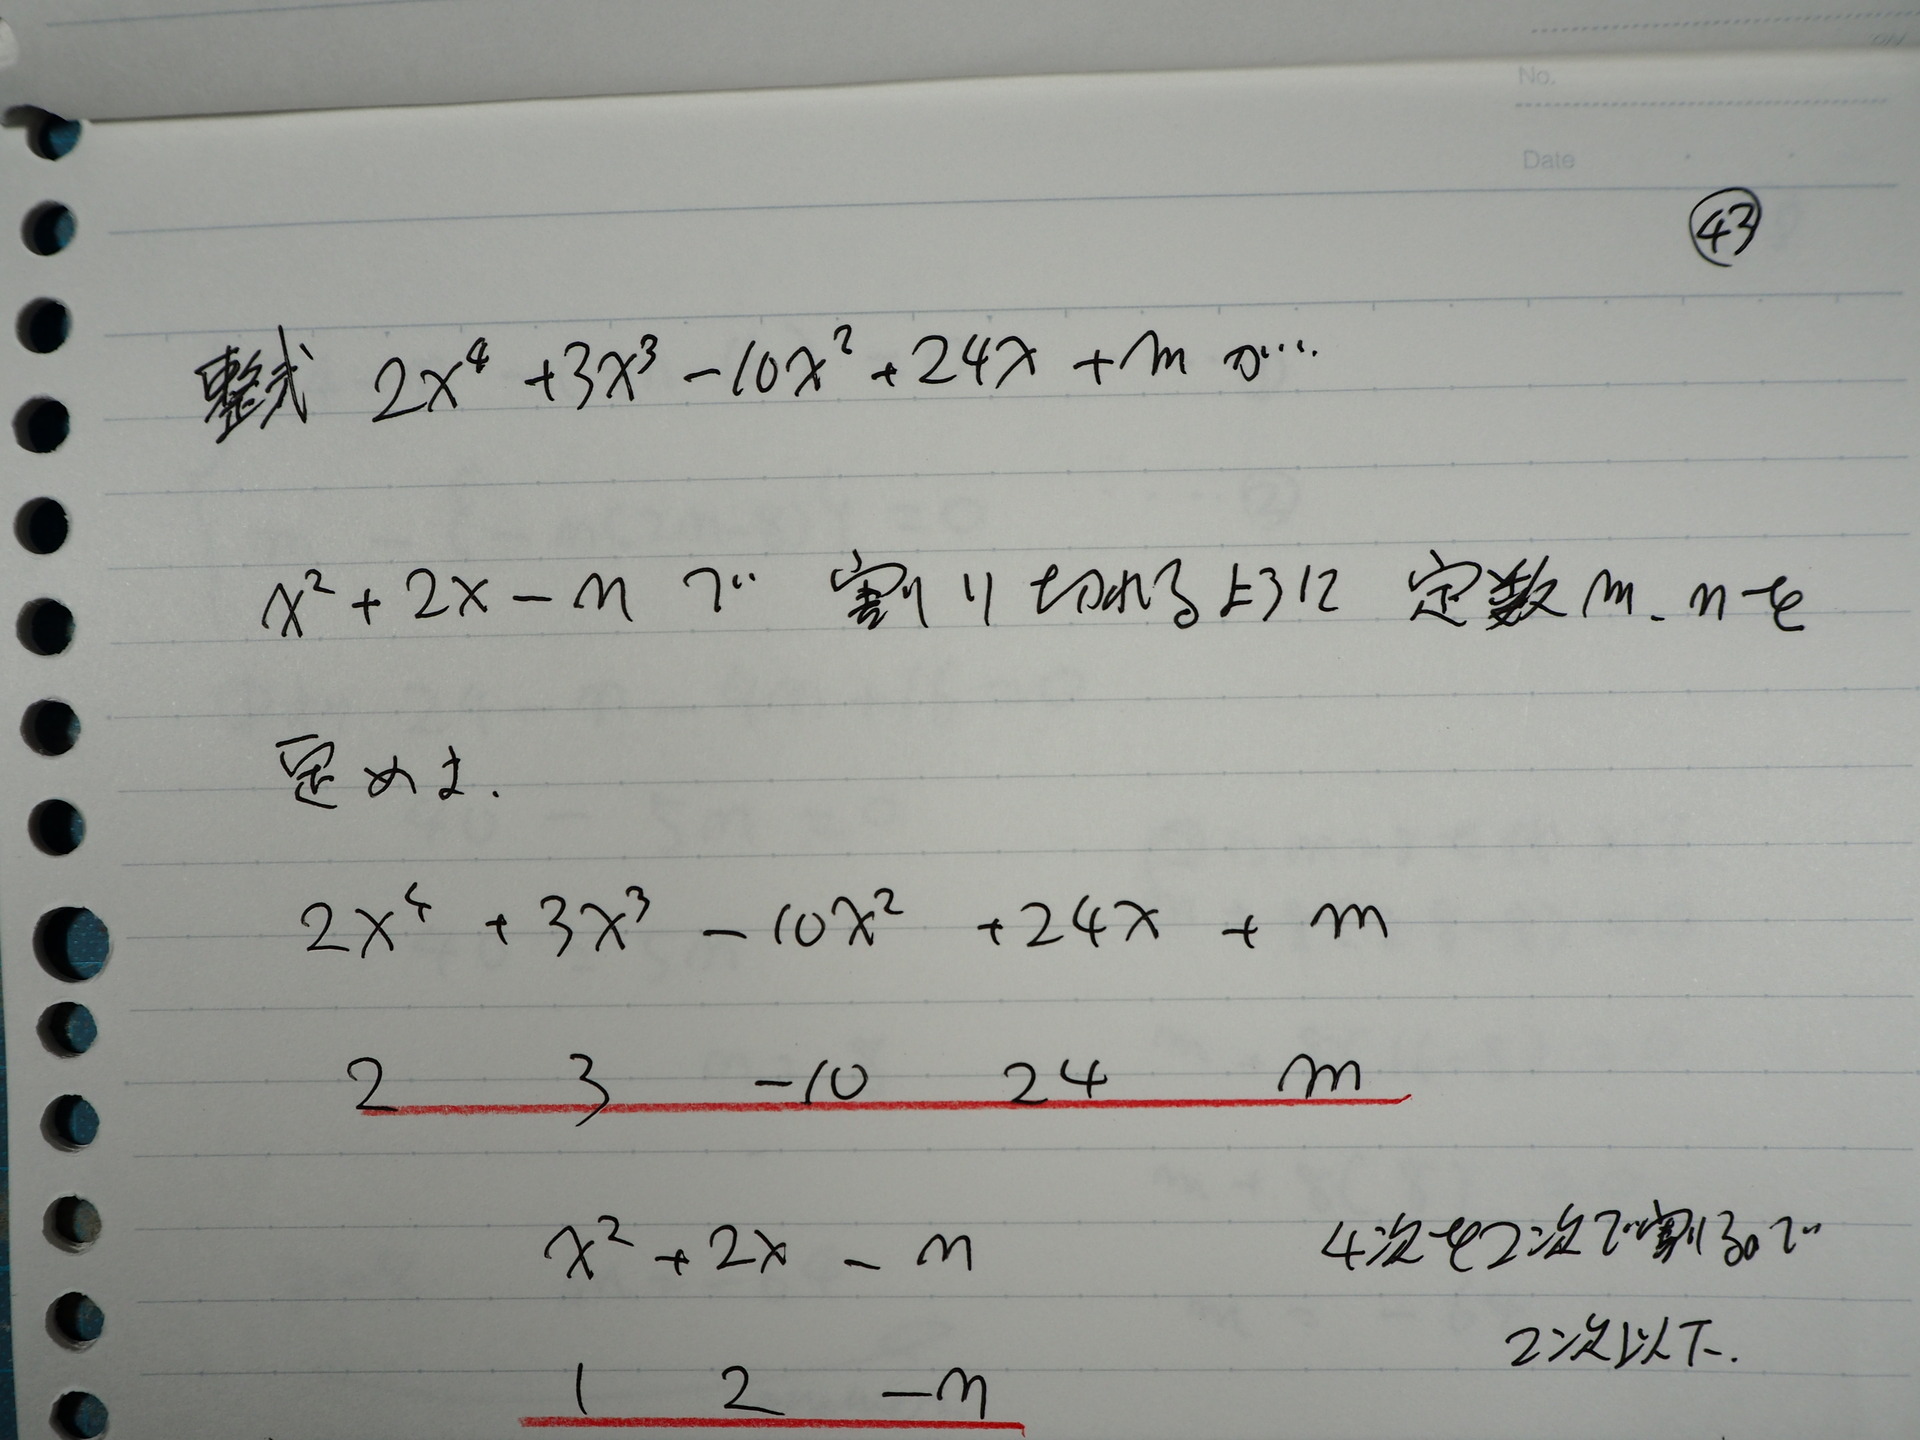 No.
Date
㊸
整式 2x⁴ +3x³ -10x² +24x +m が…
x² + 2x - n で 割り切れるように 定数 m. nを
定めよ.
2x⁴ +3x³ -10x² +24x + m
2 3 -10 24 m
x² + 2x - n
4次を2次で割るので
2次以下.
1 2 -n